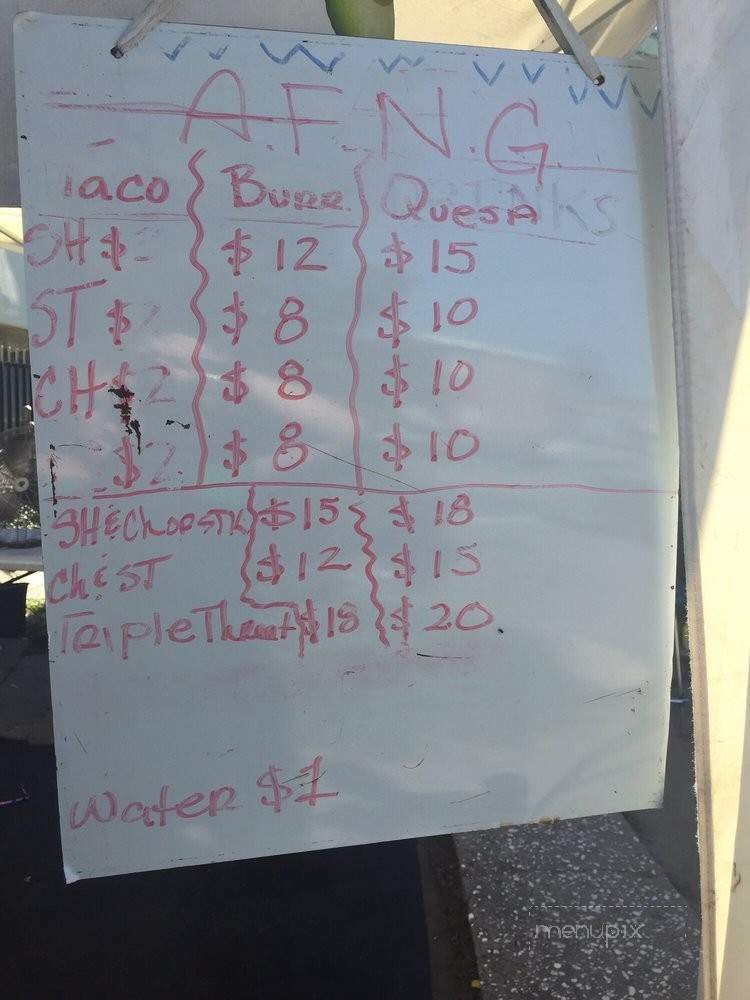 A.F.N.G.
Taco Burr. Quesa
SH $ $ 12 $ 15
ST $ $ 8 $ 10
CH $2 $ 8 $ 10
$2 $ 8 $ 10
SH & Ch or STK $15 $ 18
Ch & ST $12 $ 15
Triple Threat $18 $ 20
Water $1
menupix